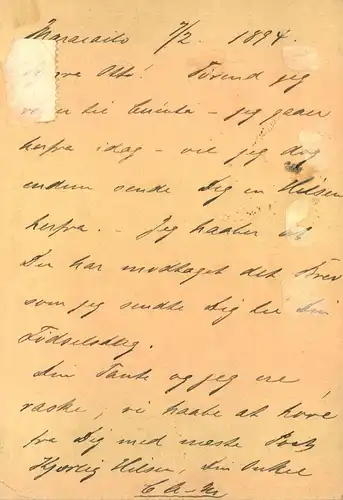 Maracaibo 7/2. 1894.
Otto! Førend jeg
til – jeg gaaer
herfra idag – vil jeg dog
endnu sende Dig en Hilsen
herfra. – Jeg haaber at
Du har modtaget det Brev
som jeg sendte Dig til Din
Födselsdag.
Din Tante og jeg ere
raske, vi haabe at höre
fra Dig med næste Post
Hjertlig Hilsen, Din Onkel